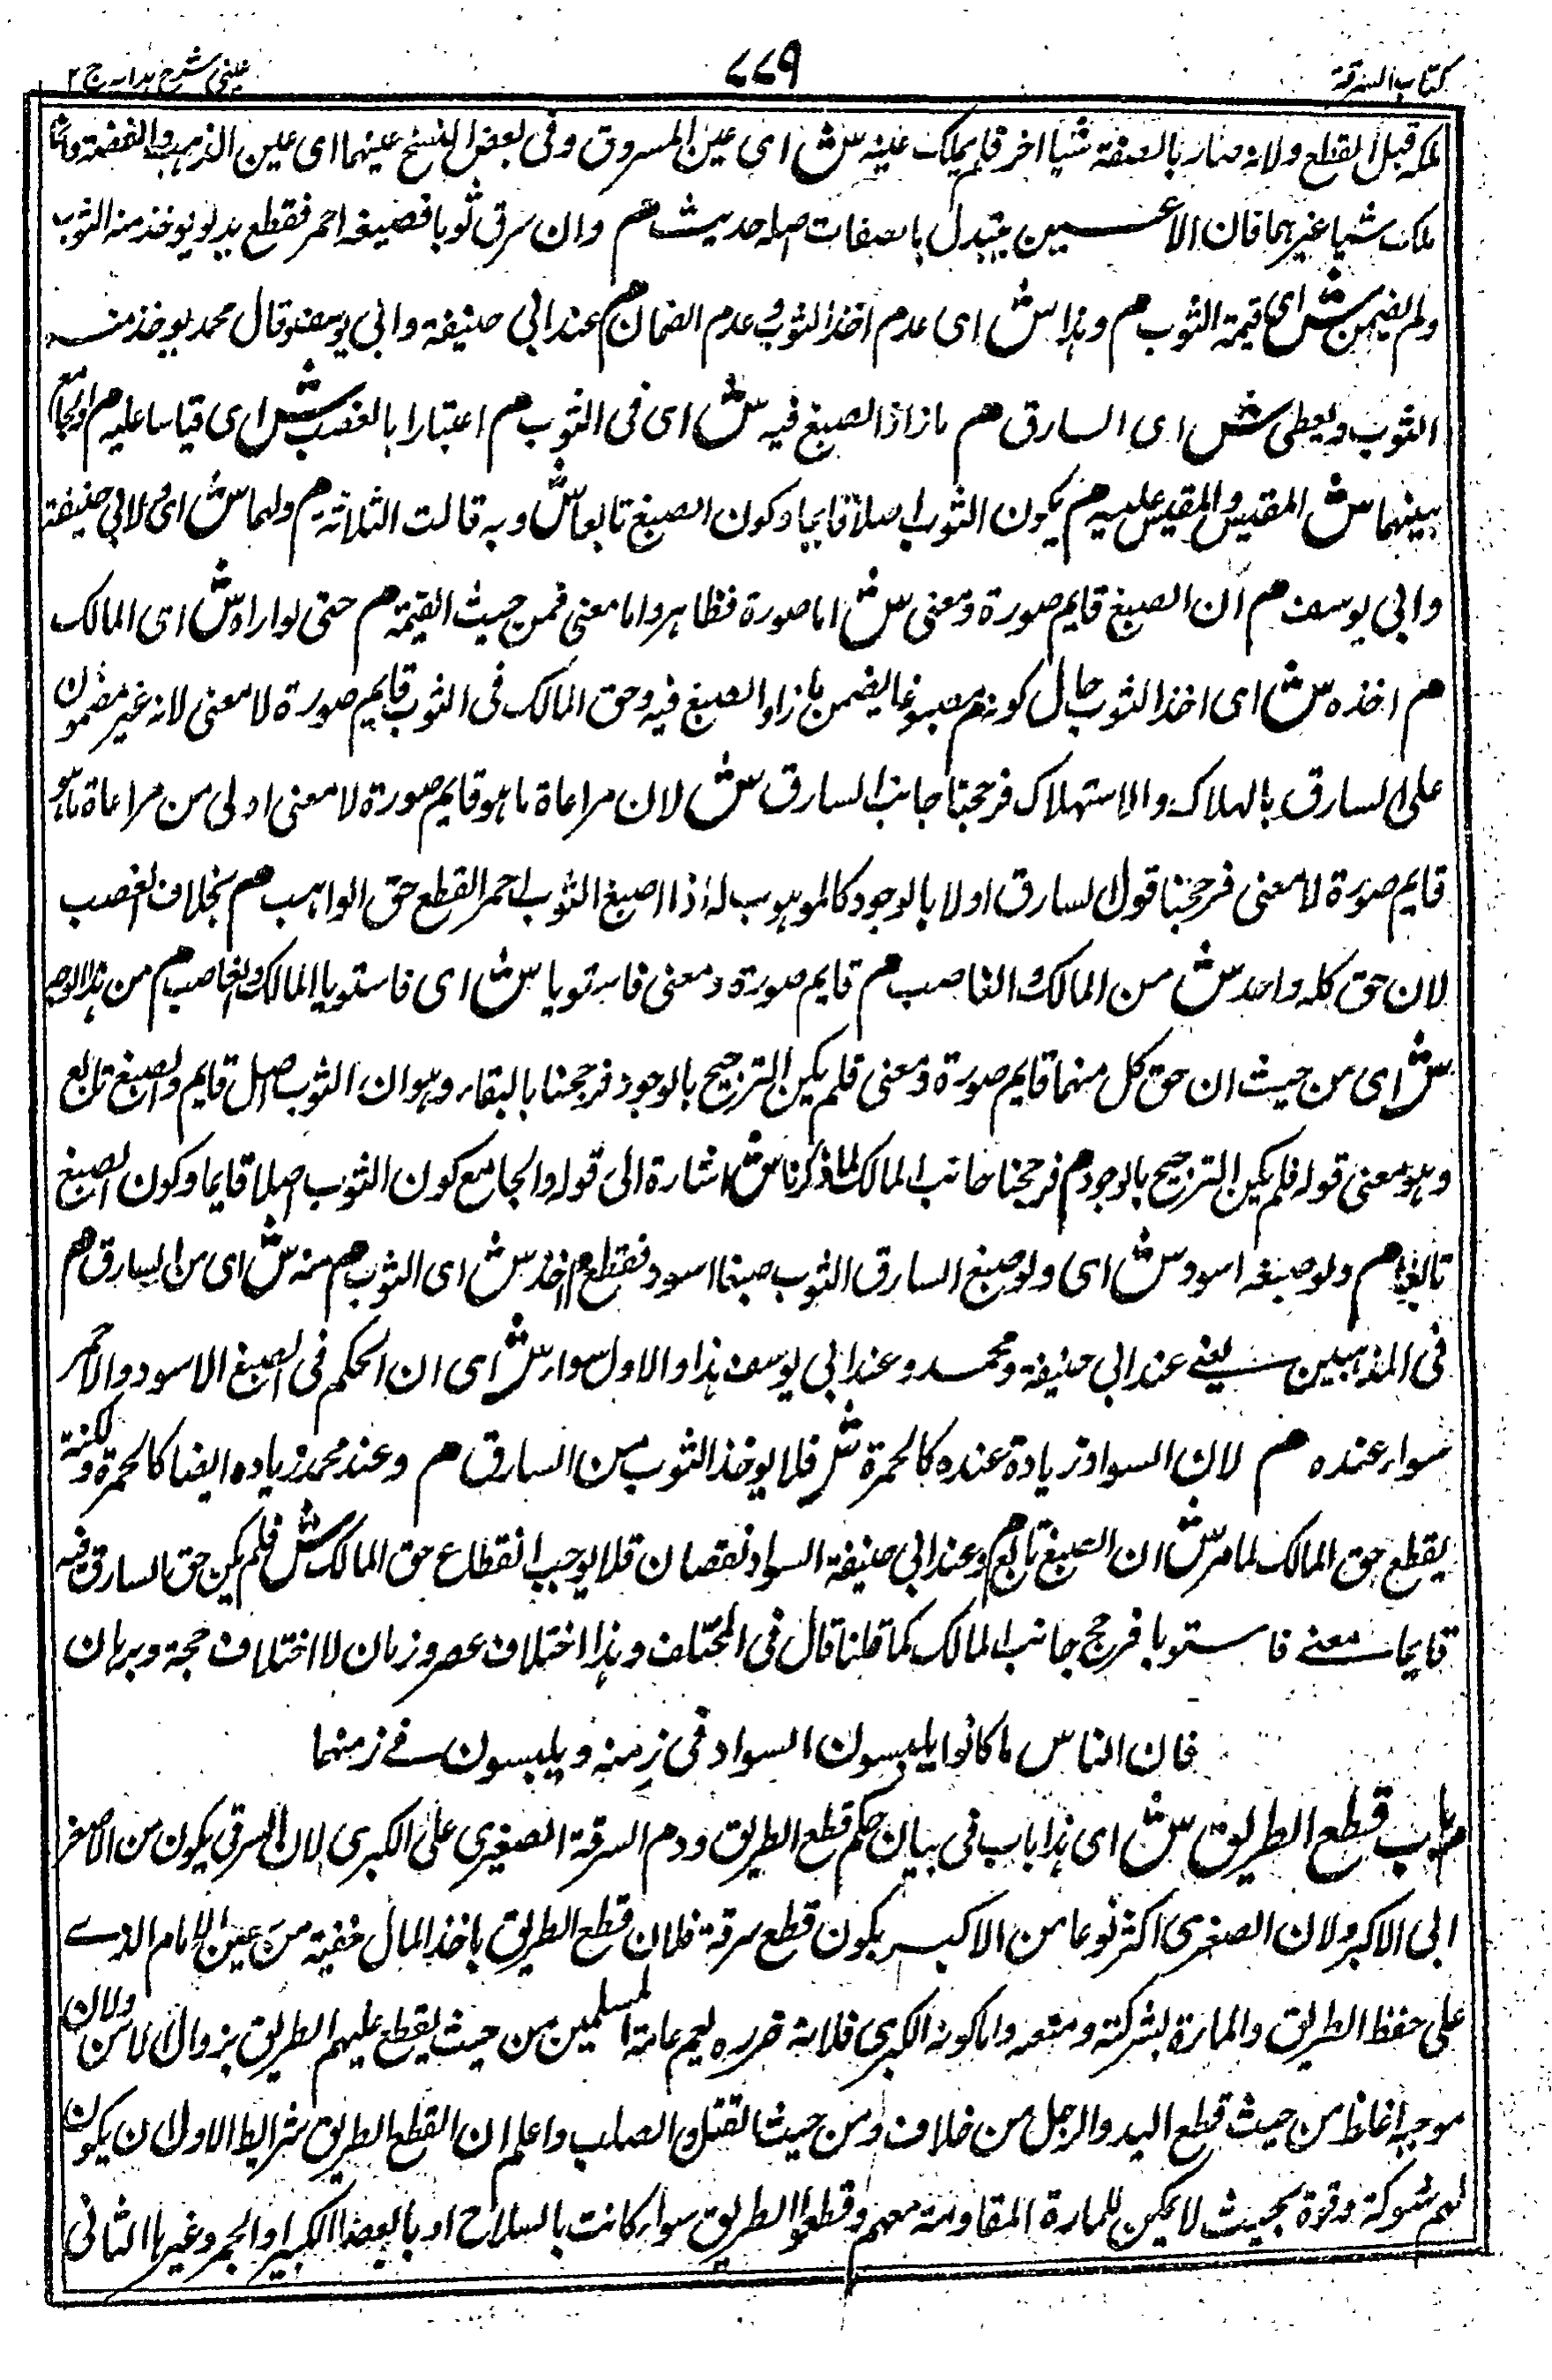 كتاب السرقة
٧٧٩
عینی شرح ہدایہ ج ٢
ملکہ قبل القطع ولانہ صار بالصنعۃ شیا اخر فلم یملک عینہ ش ای عین المسروق وفی بعض النسخ عینہما ای عین الذہب والفضۃ وانما
ملک شیا غیرہما فان الاعیـــــن یتبدل بالصفات اصلہ حدیث ھم وان سرق ثوبا فصبغہ احمر فقطع یدہ لو یوخذ منہ الثوب
ولم یضمن ش ای قیمۃ الثوب ھم وہذا ش ای عدم اخذ الثوب و عدم الضمان ھم عند ابی حنیفۃ وابی یوسف وقال محمد یوخذ منہ
الثوب ویعطی ش ای السارق ھم مازاد الصبغ فیہ ش ای فی الثوب ھم اعتبارا بالغصب ش ای قیاسا علیہ ھم والجامع
بینہما ش المقیس والمقیس علیہ ھم یکون الثوب اصلا قایما وکون الصبغ تابعا ش وبہ قالت الثلاثۃ ھم ولہما ش ای لابی حنیفۃ
وابی یوسف ھم ان الصبغ قایم صورۃ ومعنی ش اما صورۃ فظاہر واما معنی فمن حیث القیمۃ ھم حتی لو اراد ش ای المالک
ھم اخذہ ش ای اخذ الثوب حال کونہ ھم مصبوغا یضمن مازاد الصبغ فیہ وحق المالک فی الثوب قایم صورۃ لا معنی لانہ غیر مضمون
علی السارق بالہلاک والاستہلاک فرجحنا جانب السارق ش لان مراعاۃ ما ہو قایم صورۃ لا معنی اولی من مراعاۃ ما ہو
قایم صورۃ لا معنی فرجحنا قول السارق اولا بالوجود کالموہوب لہ اذا صبغ الثوب احمر القطع حق الواہب ھم بخلاف الغصب
لان حق کلہ واحد ش من المالک والغاصب ھم قایم صورۃ ومعنی فاستویا ش ای فاستویا المالک والغاصب ھم من ہذا الوجہ
ش ای من حیث ان حق کل منہما قایم صورۃ ومعنی فلم یکن الترجیح بالوجود فرجحنا بالبقاء وہو ان الثوب اصل قایم والصبغ تابع
وہو معنی قولہ فلم یکن الترجیح بالوجود ھم فرجحنا جانب المالک لما ذکرنا ش اشارۃ الی قولہ والجامع کون الثوب اصلا قایما وکون الصبغ
تابعا ھم ولو صبغہ اسود ش ای ولو صبغ السارق الثوب صبغا اسود فقطع ھم اخذ ش ای الثوب ھم منہ ش ای من السارق ھم
فی المذہبین یعنی عند ابی حنیفۃ ومحمد وعند ابی یوسف ہذا والاول سواء ش ای ان الحکم فی الصبغ الاسود والاحمر
سواء عندہ ھم لان السواد زیادۃ عندہ کالحمرۃ ش فلا یوخذ الثوب من السارق ھم وعند محمد زیادہ ایضا کالحمرۃ ولکنہ
یقطع حق المالک لما مر ش ان الصبغ تابع ھم وعند ابی حنیفۃ السواد نقصان فلا یوجب انقطاع حق المالک ش فلم یکن حق السارق فیہ
قایما معنی فاستویا فرجح جانب المالک کما قلنا قال فی المختلف وہذا اختلاف عصر وزمان لا اختلاف حجۃ وبرہان
فان الناس ما کانوا یلبسون السواد فی زمنہ ویلبسون فی زمنہما
ھم باب قطع الطریق ش ای ہذا باب فی بیان حکم قطع الطریق ودم السرقۃ الصغری علی الکبری لان السرقی یکون من الاصغر
الی الاکبر ولان الصغری اکثر نوعا من الاکبر یکون قطع سرقۃ فلان قطع الطریق یاخذ المال خفیۃ من عین الامام الذے
علی حفظ الطریق والمارۃ بشرکتہ ومنعہ واما کونہ الکبری فلانہ ضررہ لیعم عامۃ المسلمین من حیث یقطع علیہم الطریق بزوال الامن ولان
موجبہ اغلظ من حیث قطع الید والرجل من خلاف ومن حیث القتل والصلب واعلم ان القطع الطریق شرایط الاول ان یکون
لہم شوکۃ وقوۃ بحیث لا یمکن للمارۃ المقاومۃ معہم وقطعوا الطریق سواء کانت بالسلاح او بالعصا الکبیر او الحجر وغیرہا الثانی